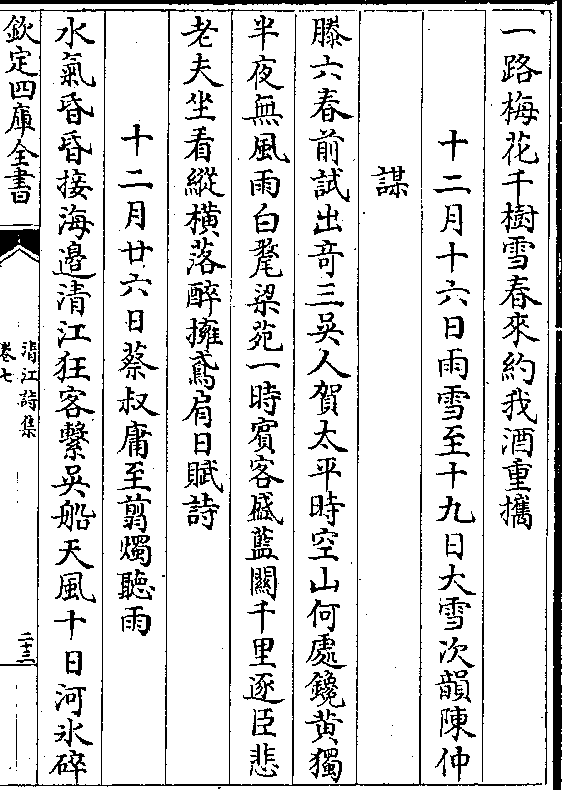 一路梅花千樹雪春來約我酒重攜
十二月十六日雨雪至十九日大雪次韻陳仲
謀
滕六春前試出竒三吳人賀太平時空山何處鑱黃獨
半夜無風雨白氂梁苑一時賓客盛藍關千里逐臣悲
老夫坐看縱橫落醉擁鳶肩日賦詩
十二月廿六日蔡叔庸至翦燭聽雨
水氣昏昏接海邉清江狂客繫吳船天風十日河氷碎
欽定四庫全書
清江詩集
卷七
二十三